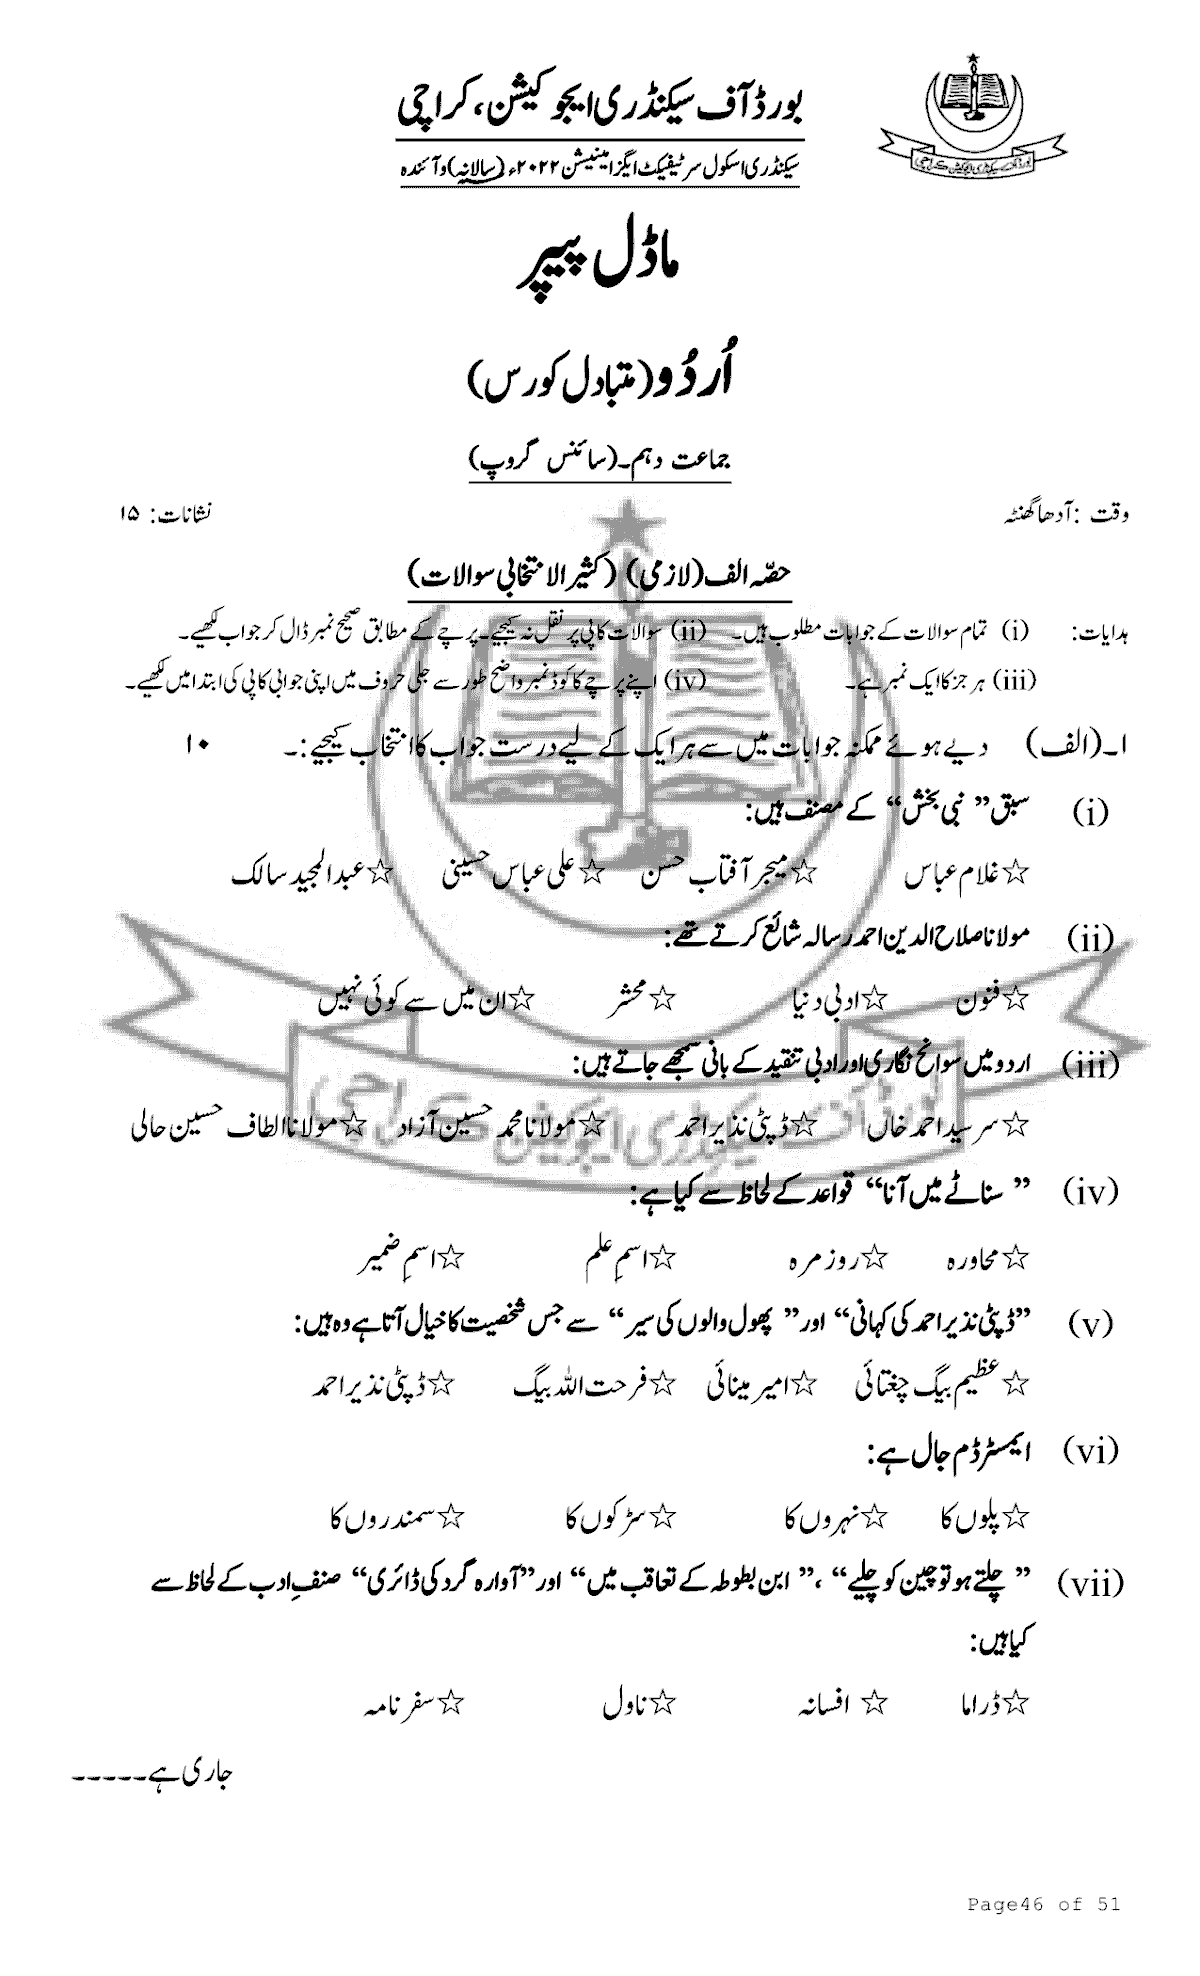 بورڈ آف سیکنڈری ایجوکیشن، کراچی
بورڈ آف سیکنڈری ایجوکیشن کراچی
سیکنڈری اسکول سرٹیفکیٹ ایگزامینیشن ۲۰۲۲ء (سالانہ) و آئندہ
ماڈل پیپر
اُردُو (متبادل کورس)
جماعت دہم۔ (سائنس گروپ)
وقت : آدھا گھنٹہ نشانات: ۱۵
حصّہ الف (لازمی) (کثیر الانتخابی سوالات)
ہدایات: (i) تمام سوالات کے جوابات مطلوب ہیں۔ (ii) سوالات کاپی پر نقل نہ کیجیے۔ پرچے کے مطابق صحیح نمبر ڈال کر جواب لکھیے۔
(iii) ہر جز کا ایک نمبر ہے۔ (iv) اپنے پرچے کا کوڈ نمبر واضح طور سے جلی حروف میں اپنی جوابی کاپی کی ابتدا میں لکھیے۔
۱۔ (الف) دیے ہوئے ممکنہ جوابات میں سے ہر ایک کے لیے درست جواب کا انتخاب کیجیے :۔ ۱۰
(i) سبق ”نبی بخش“ کے مصنف ہیں:
☆ غلام عباس ☆ میجر آفتاب حسن ☆ علی عباس حسینی ☆ عبدالمجید سالک
(ii) مولانا صلاح الدین احمد رسالہ شائع کرتے تھے:
☆ فنون ☆ ادبی دنیا ☆ محشر ☆ ان میں سے کوئی نہیں
(iii) اردو میں سوانح نگاری اور ادبی تنقید کے بانی سمجھے جاتے ہیں:
☆ سر سید احمد خاں ☆ ڈپٹی نذیر احمد ☆ مولانا محمد حسین آزاد ☆ مولانا الطاف حسین حالی
بورڈ آف سیکنڈری ایجوکیشن کراچی
(iv) ”سناٹے میں آنا“ قواعد کے لحاظ سے کیا ہے:
☆ محاورہ ☆ روزمرہ ☆ اسمِ علم ☆ اسمِ ضمیر
(v) ”ڈپٹی نذیر احمد کی کہانی“ اور ”پھول والوں کی سیر“ سے جس شخصیت کا خیال آتا ہے وہ ہیں:
☆ عظیم بیگ چغتائی ☆ امیر مینائی ☆ فرحت اللہ بیگ ☆ ڈپٹی نذیر احمد
(vi) ایمسٹرڈم جال ہے:
☆ پلوں کا ☆ نہروں کا ☆ سڑکوں کا ☆ سمندروں کا
(vii) ”چلتے ہو تو چین کو چلیے“، ”ابن بطوطہ کے تعاقب میں“ اور ”آوارہ گرد کی ڈائری“ صنفِ ادب کے لحاظ سے
کیا ہیں:
☆ ڈراما ☆ افسانہ ☆ ناول ☆ سفر نامہ
جاری ہے۔۔۔۔۔
Page46 of 51